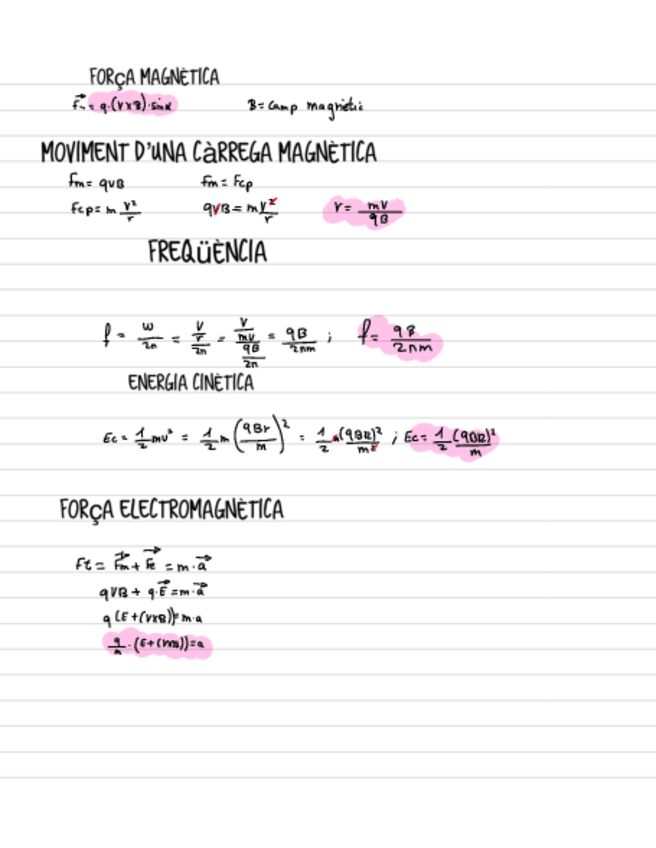 FORÇA MAGNÈTICA
F⃗m = q·(v×B)·sinα B = Camp magnètic
MOVIMENT D'UNA CÀRREGA MAGNÈTICA
Fm = qvB Fm = Fcp
Fcp = m v²/r qvB = m v²/r r = mv/qB
FREQÜÈNCIA
f = w/2π = (v/r)/2π = (v/(mv/qB))/2π = qB/2πm ; f = qB/2πm
ENERGIA CINÈTICA
Ec = 1/2 mv² = 1/2 m (qBr/m)² = 1/2 m (qBR)²/m² ; Ec = 1/2 (qBR)²/m
FORÇA ELECTROMAGNÈTICA
Ft = F⃗m + F⃗e = m·a⃗
qvB + q·E⃗ = m·a⃗
q (E+(v×B)) = m·a
q/m · (E+(v×B)) = a